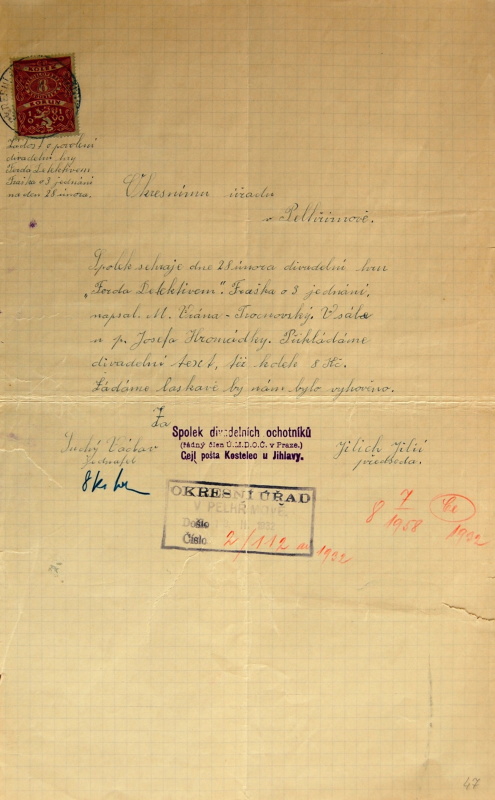 KOLEK
KORUN
Žádost o povolení
divadelní hry
Forda Detektivem
Fraška o 3 jednání
na den 28 února.
Okresnímu úřadu
v Pelhřimově.
Spolek sehraje dne 28 února divadelní hru
„Forda Detektivem". Fraška o 3 jednání,
napsal M. Vrána-Trocnovský. V sále
u p. Josefa Hromádky. Přikládáme
divadelní text, též kolek 8 Kč.
Žádáme laskavě by nám bylo vyhověno.
Za
Spolek divadelních ochotníků
(řádný člen Ú.M.D.O.Č. v Praze.)
Cejl pošta Kostelec u Jihlavy.
Suchý Václav
jednatel
Jílich Jiljí
předseda.
8 Kč
OKRESNÍ ÚŘAD
V PELHŘIMOVĚ
Došlo 1932
Číslo 2/112 1932
8 7
1958
1932
47